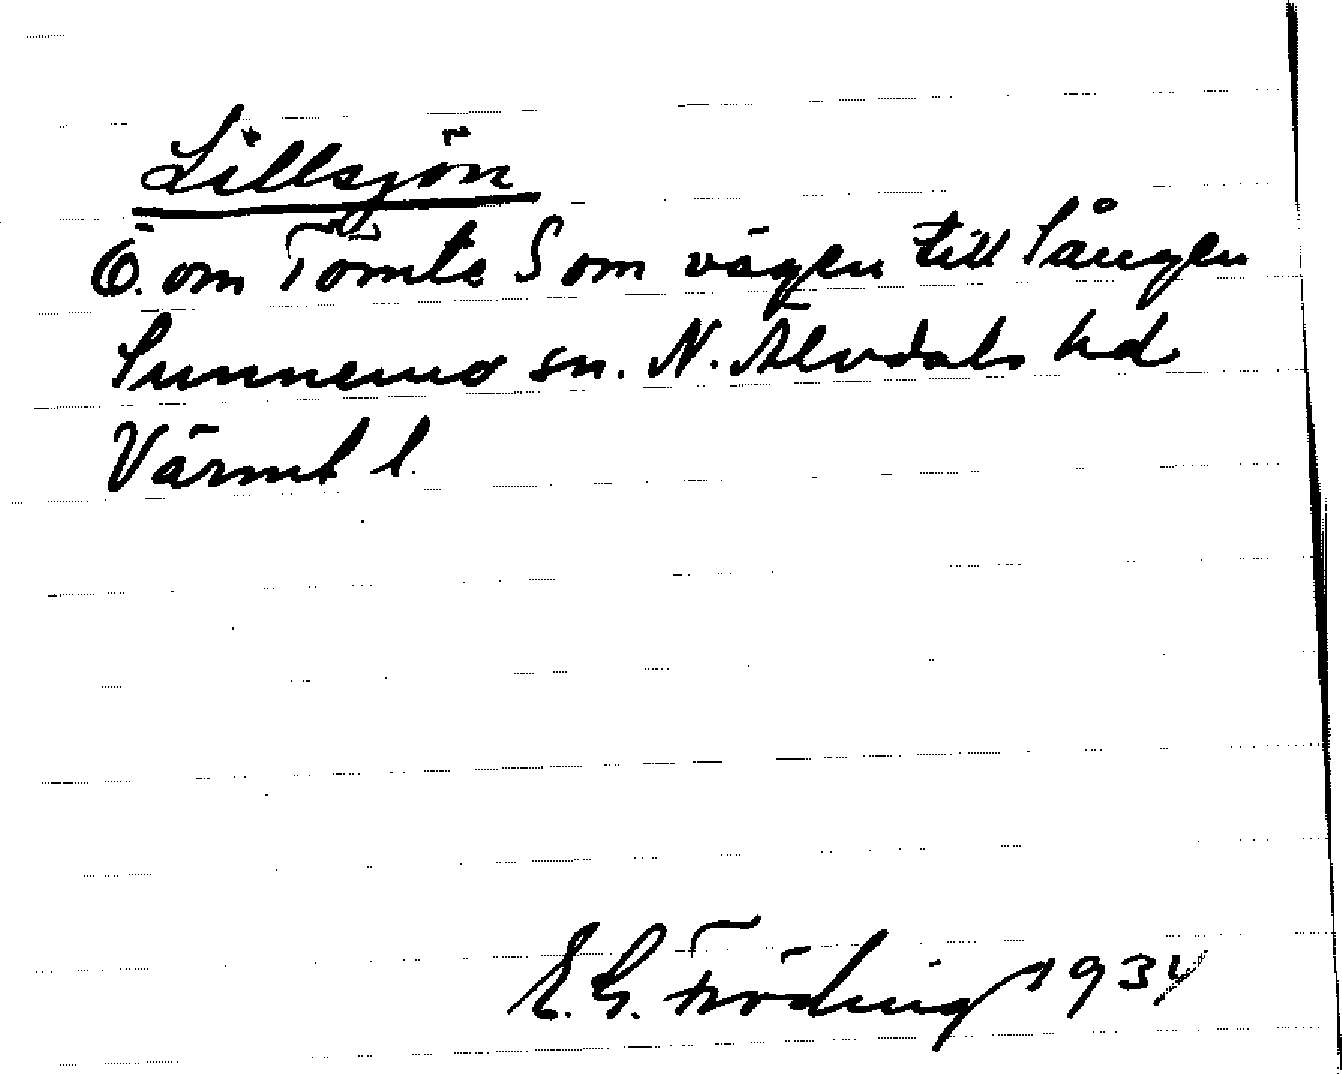 Lillsjön
Ö. om Tomta S om vägen till Sången
Sunnemo sn. N. Älvdals hd
Värml l.
E. G. Fröding 1934